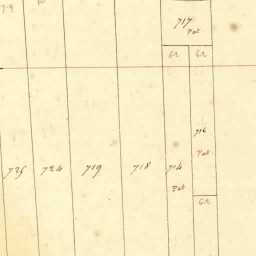 717
Pat
62 62
716
Pat
725 724 719 718 714
Pat
62